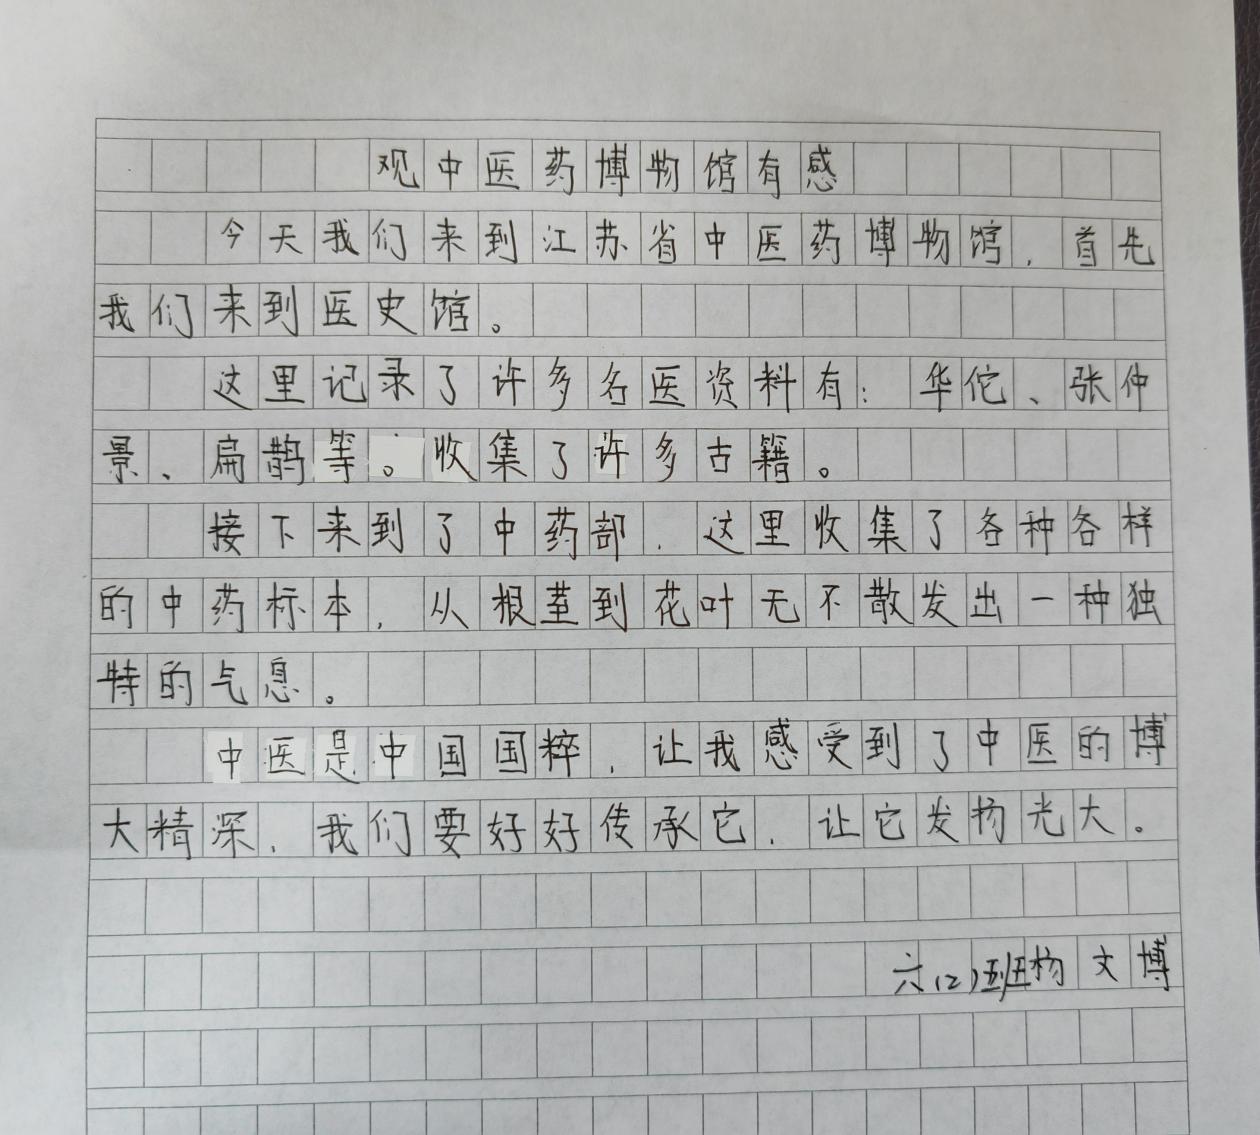 观中医药博物馆有感
今天我们来到江苏省中医药博物馆，首先
我们来到医史馆。
这里记录了许多名医资料有：华佗、张仲
景、扁鹊等。收集了许多古籍。
接下来到了中药部，这里收集了各种各样
的中药标本，从根茎到花叶无不散发出一种独
特的气息。
中医是中国国粹，让我感受到了中医的博
大精深，我们要好好传承它，让它发扬光大。
六(2)班杨文博